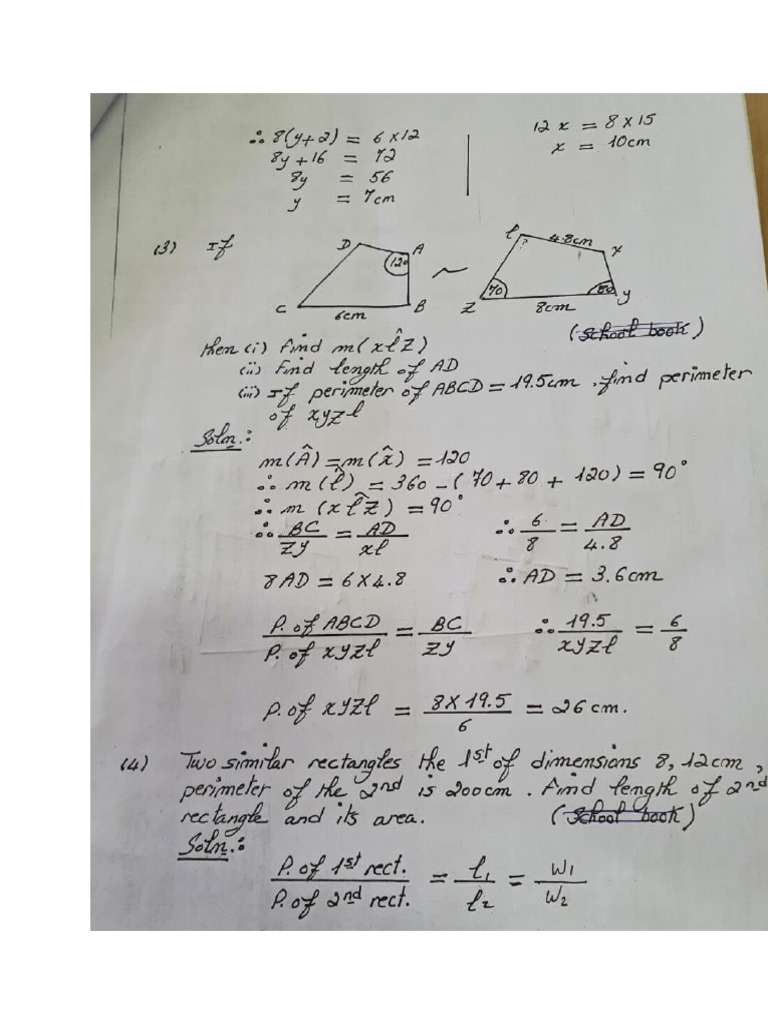 ∴ 8(y+2) = 6×12
8y+16 = 72
8y = 56
y = 7cm
12x = 8×15
x = 10cm
(3) If
D A 120 C 6cm B
~
l ? 4.8cm x 70 80 Z 8cm y
(School book)
then (i) find m(xl̂Z)
(ii) Find length of AD
(iii) If perimeter of ABCD = 19.5cm. find perimeter
of xyzl
Soln.:
m(Â) = m(x̂) = 120
∴ m(l̂) = 360 - (70 + 80 + 120) = 90°
∴ m (xl̂z) = 90°
∴ BC/ZY = AD/xl ∴ 6/8 = AD/4.8
8AD = 6×4.8 ∴ AD = 3.6cm
P. of ABCD/P. of xyzl = BC/ZY ∴ 19.5/xyzl = 6/8
P. of xyzl = 8×19.5/6 = 26 cm.
(4) Two similar rectangles the 1st of dimensions 8, 12cm,
perimeter of the 2nd is 200cm. Find length of 2nd
rectangle and its area. (School book)
Soln.:
P. of 1st rect./P. of 2nd rect. = l1/l2 = W1/W2